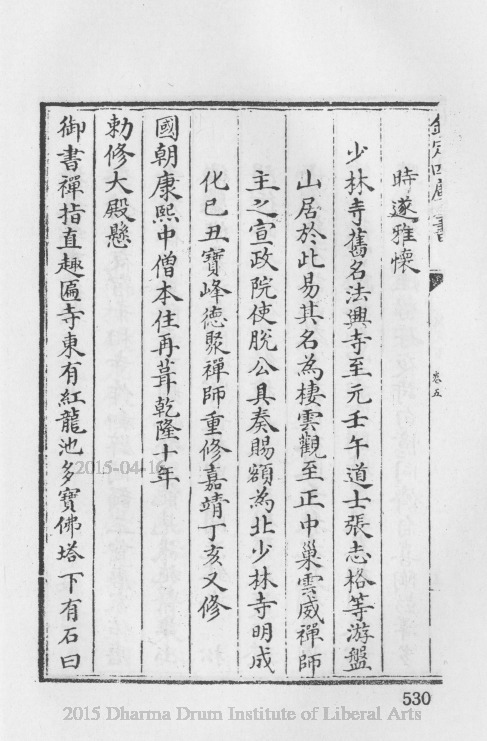 欽定四庫全書
卷五
時遂雅懷
少林寺舊名法興寺至元壬午道士張志格等游盤
山居於此易其名為棲雲觀至正中巢雲威禪師
主之宣政院使脫公具奏賜額為北少林寺明成
化己丑寶峰德聚禪師重修嘉靖丁亥又修
國朝康熙中僧本住再葺乾隆十年
勅修大殿懸
御書禪指直趣匾寺東有紅龍池多寶佛塔下有石曰
530
2015-04-16
2015 Dharma Drum Institute of Liberal Arts